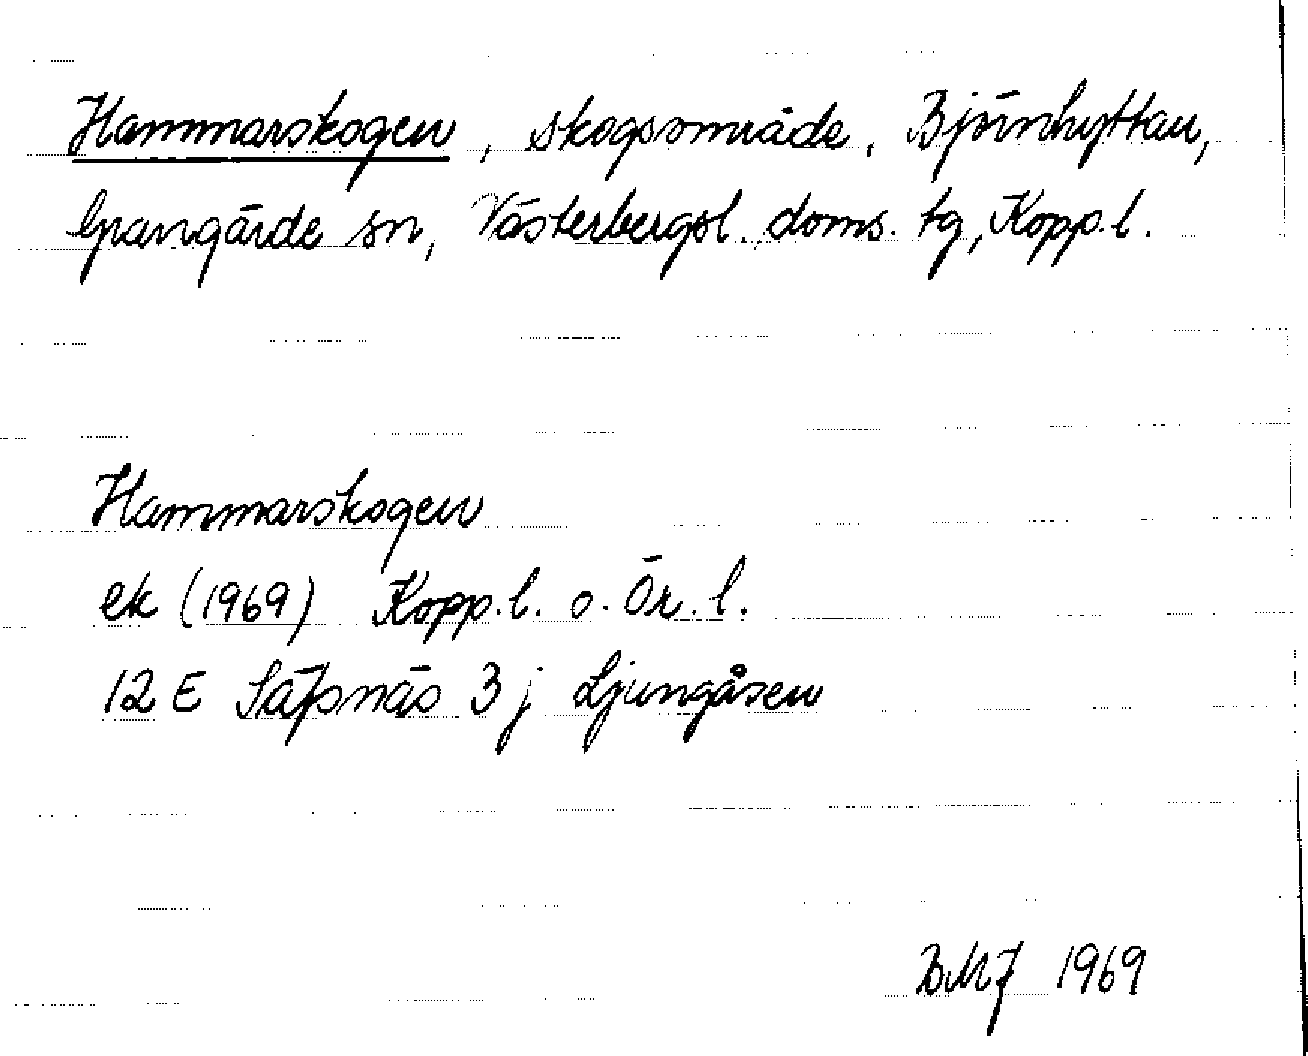 Hammarskogen, skogsområde, Björnhyttan,
Grangärde sn, Västerbergsl. doms. tg, Kopp.l.
Hammarskogen
ek (1969) Kopp.l. o. Ör.l.
12 E Säfsnäs 3 j Ljungåsen
BMJ 1969